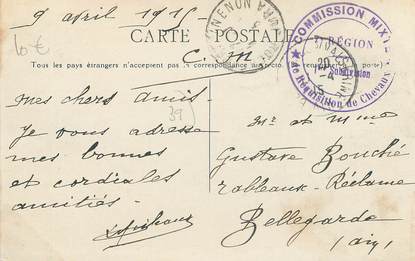 9 avril 1915
10 €
CARTE POSTALE
C. M.
Tous les pays étrangers n'acceptent pas la correspondance
COMMISSION MIXTE
RÉGION
Subdivision
de Réquisition de Chevaux
20
-4
15
39
mes chers Amis
Je vous adresse
mes bonnes
et cordiales
amitiés.
Mr et Mme
Gustave Bouché
Tableaux-Réclame
Bellegarde
(Ain)